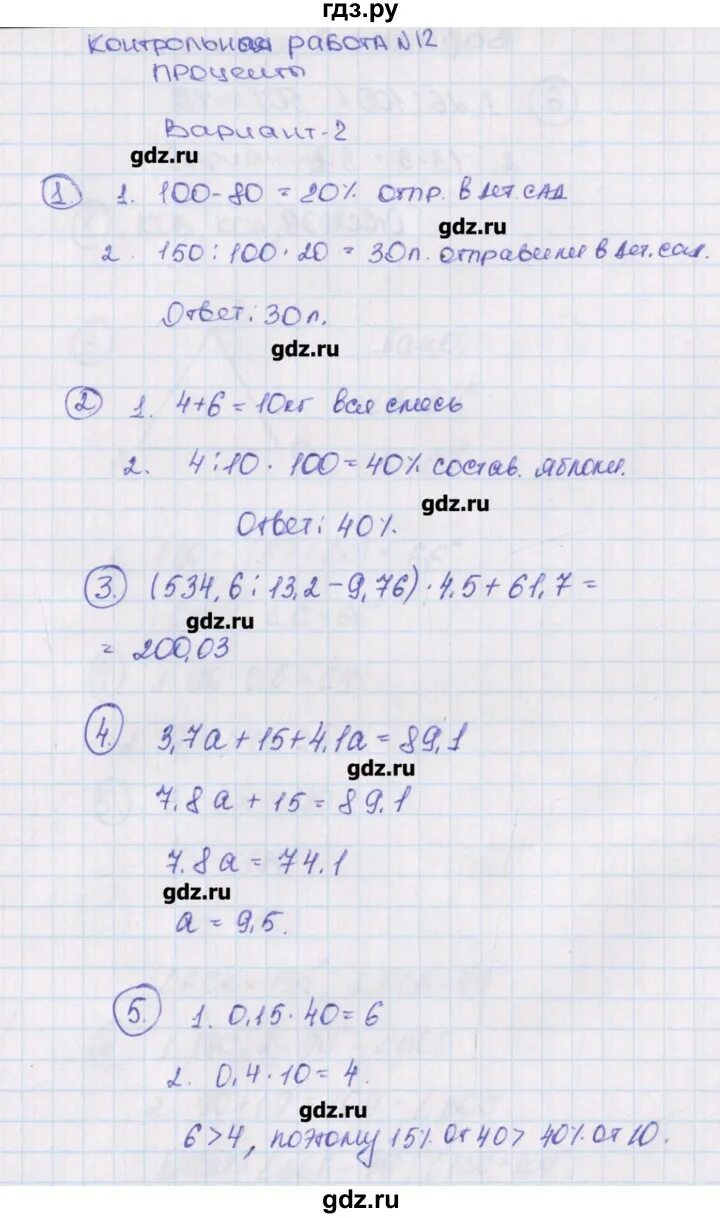 гдз.ру
Контрольная работа №12
Проценты
Вариант-2
gdz.ru
1. 1. 100-80 = 20% отпр. в дет. сад
gdz.ru
2. 150:100·20 = 30л. отправили в дет. сад.
Ответ: 30л.
gdz.ru
2 1. 4+6 = 10кг вся смесь
2. 4:10·100=40% состав. яблоки.
gdz.ru
Ответ: 40%.
3. (534,6:13,2-9,76)·4,5+61,7=
gdz.ru
= 200,03
4. 3,7a+15+4,1a=89,1
gdz.ru
7.8a+15=89.1
7.8a=74.1
gdz.ru
a = 9,5.
5. 1. 0,15·40=6
2. 0,4·10=4.
gdz.ru
6>4, поэтому 15% от 40> 40% от 10.
gdz.ru